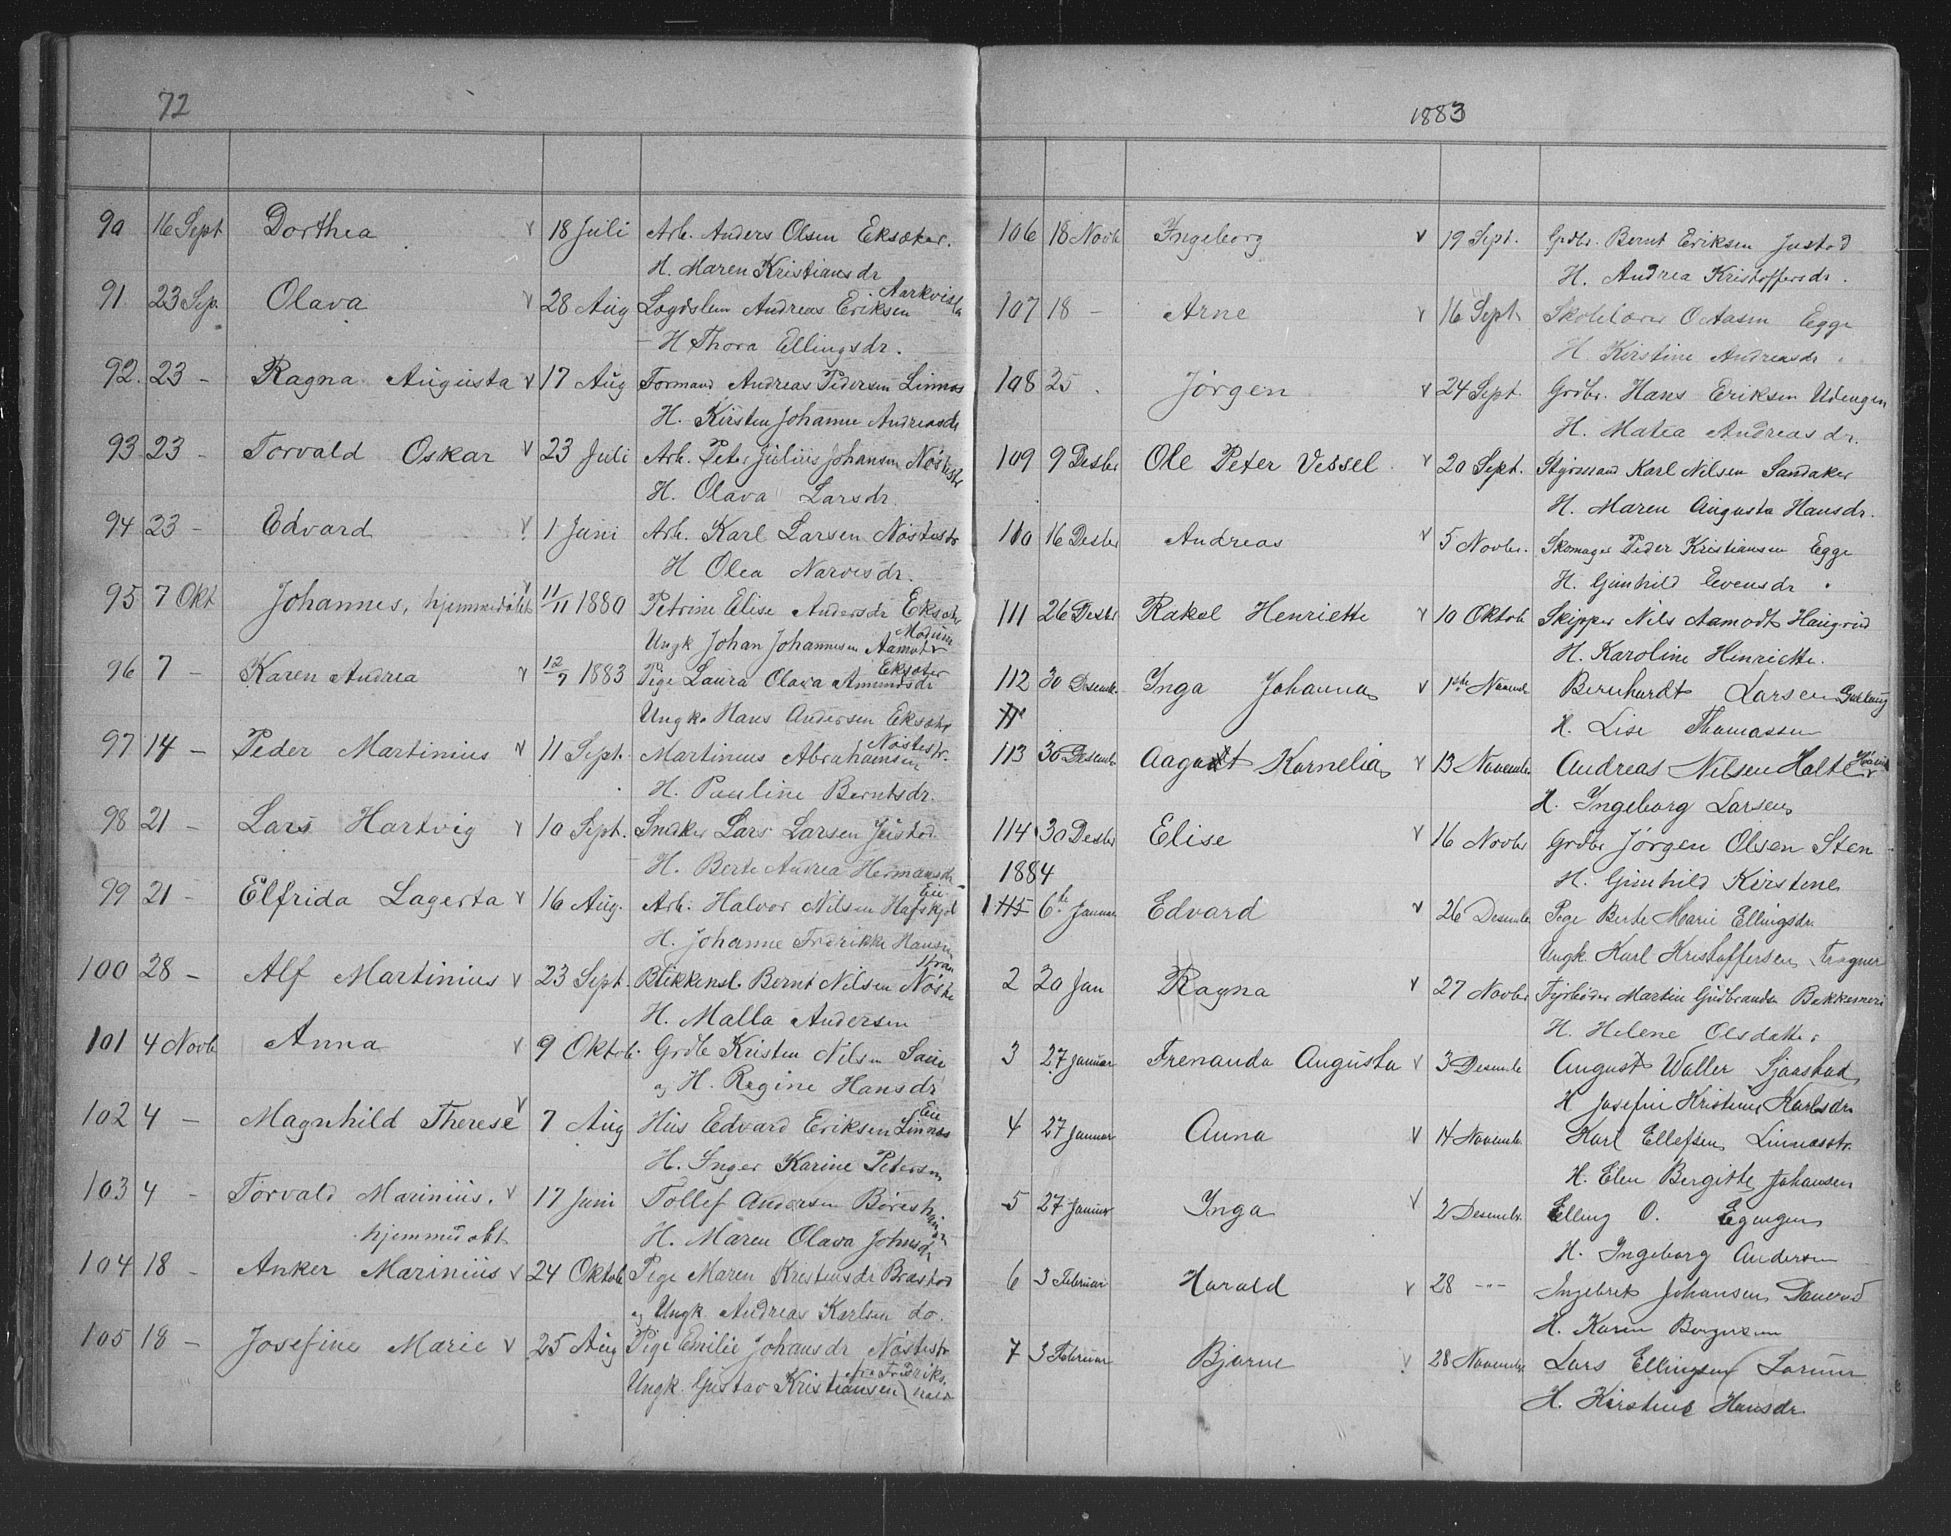 72
90 16 Sept Dorthea v 18 Juli Arb. Anders Olsen Eksæker.
H. Maren Kristiansdr
91. 23 Sep. Olava v 28 Aug Logdslem Andreas Eriksen Aarkvisla
H Thora Ellingsdr.
92. 23 - Ragna Augusta v 17 Aug Formand Andreas Pedersen Linnes
H. Kirsten Johanne Andreasdr
93 23 - Torvald Oskar v 23 Juli Arb. Peter Julius Johansen Nøstestr
H. Olava Larsdr.
94 23 - Edvard v 1 Juni Arb. Karl Larsen Nøstestr
H Olea Narvesdr.
95 7 Okt Johannes, hjemmedøbt v 11/11 1880 Petrine Elise Andersdr Eksæker
Ungk Johan Johannesen Aamodt Modum
96 7 - Karen Andrea v 12/7 1883 Pige Laura Olava Amundsdr Eksæker
Ungk. Hans Andersen Eksæker
97 14 - Peder Martinius v 11 Sept. Martinius Abrahamsen Nøstestr.
H. Pauline Berntsdr.
98 21 - Lars Hartvig v 10 Sept. Snekker Lars Larsen Justad
H. Berte Andrea Hermansdr
99 21 - Elfrida Lagerta v 16 Aug. Arb. Halvor Nilsen Hafskjold Eie
H. Johanne Fredrikke Hansen
100 28 - Alf Martinius v 23 Sept. Blikkensl. Bernt Nilsen Nøste
H. Malla Andersen
101 4 Novb Anna v 9 Oktob. Grdb Kristen Nilsen
og H. Regine Hansdr
102 4 - Magnhild Therese v 7 Aug Hus Edvard Eriksen Linnes Eie
H. Inger Karine Petersen
103 4 - Torvald Marinius. v 17 Juni Tollef Andersen
hjemmedøbt H. Maren Olava Johnsdr
104 18 - Anker Marinius v 24 Oktob Pige Maren Kristensdr Brastad
og Ungk. Andreas Karlsen do.
105 18 - Josefine Marie v 25 Aug Pige Emilie Johansdr Nøstestr
Ungk. Gustav Kristiansen (fra Fredriks.hald
1883
106 18 Novb Ingeborg v 19 Sept. Grdbr. Bernt Eriksen Justad
H. Andrea Kristoffersdr.
107 18 - Arne v 16 Sept Skolelærer O Aasen Egge
H. Kirstine Andreasdr.
108 25. Jørgen v 24 Sept. Grdbr. Hans Eriksen Udengen
H. Matea Andreasdr.
109 9 Desbr Ole Peter Vessel. v 20 Sept. Styrmand Karl Nilsen Sandaker
H. Maren Augusta Hansdr.
110 16 Desbr Andreas v 5 Novbr. Skomager Peder Kristiansen Egge
H. Gunhild Evensdr.
111 26 Desbr Rakel Henriette v 10 Oktob Skipper Nils Aamodt Haugrud
H. Karoline Henriette.
112 30 Desemb. Inga Johanna v 1ste Novemb Bernhardt Larsen Gullaug
11 H. Lise Thomassen
113 30 Desemb. Aagodt Kornelia v 13 November Andreas Nilsen Holte
H. Ingeborg Larsen
114 30 Desbr Elise v 16 Novbr Grdbr Jørgen Olsen Sten
1884 H. Gunhild Kirstene
1 115 6te Januar Edvard v 26 Desember Pige Berte Marie Ellingsdr.
Ungk. Karl Kristoffersen Tragner
2 20 Jan Ragna v 27 Novbr Fyrbøder Martin Gudbrandsen
H. Helene Olsdatter
3 27 Januar Frenanda Augusta v 3 Desemb August Waller Sjaastad
H Josefine Kristine Karlsdr
4 27 Januar Anna v 14 Novemb. Karl Ellefsen Linnesstr.
H. Elen Bergitte Johansen
5 27 Januar Inga v 2 Desembr. Elling O. Egengen
H. Ingeborg Andersen
6 3 Februar Harald v 28 -"- Ingebret Johansen Dauerud
H. Karen Borgersen
7 3 Februar Bjarne v 28 November Lars Ellingsen Lorum
H. Kirstine Hansdr